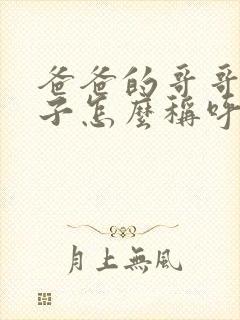 爸爸的哥哥
子怎麼稱呼
月上無風